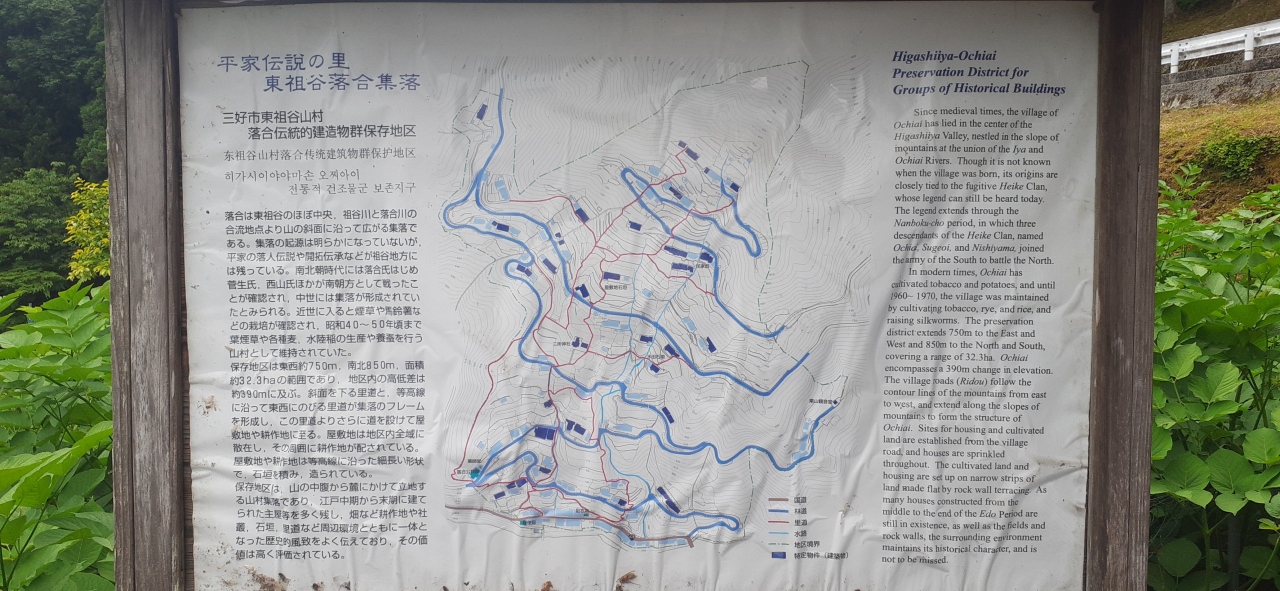 平家伝説の里
東祖谷落合集落
三好市東祖谷山村
落合伝統的建造物群保存地区
东祖谷山村落合传统建筑物群保护地区
히가시이야야마손 오찌아이
전통적 건조물군 보존지구
落合は東祖谷のほぼ中央、祖谷川と落合川の
合流地点より山の斜面に沿って広がる集落で
ある。集落の起源は明らかになっていないが、
平家の落人伝説や開拓伝承などが祖谷地方に
は残っている。南北朝時代には落合氏はじめ
菅生氏、西山氏ほかが南朝方として戦ったこ
とが確認され、中世には集落が形成されてい
たとみられる。近世に入ると煙草や馬鈴薯な
どの栽培が確認され、昭和40～50年頃まで
葉煙草や各種麦、水陸稲の生産や養蚕を行う
山村として維持されていた。
保存地区は東西約750m、南北850m、面積
約32.3haの範囲であり、地区内の高低差は
約390mに及ぶ。斜面を下る里道と、等高線
に沿って東西にのびる里道が集落のフレーム
を形成し、この里道よりさらに道を設けて屋
敷地や耕作地に至る。屋敷地は地区内全域に
散在し、その周囲に耕作地が配されている。
屋敷地や耕作地は等高線に沿った細長い形状
で、石垣を積み、造られている。
保存地区は、山の中腹から麓にかけて立地す
る山村集落であり、江戸中期から末期に建て
られた主屋等を多く残し、畑など耕作地や社
叢、石垣、里道など周辺環境とともに一体と
なった歴史的風致をよく伝えており、その価
値は高く評価されている。
国道
林道
里道
水路
地区境界
特定物件（建築物）
Higashiiya-Ochiai
Preservation District for
Groups of Historical Buildings
Since medieval times, the village of
Ochiai has lied in the center of the
Higashiiya Valley, nestled in the slope of
mountains at the union of the Iya and
Ochiai Rivers. Though it is not known
when the village was born, its origins are
closely tied to the fugitive Heike Clan,
whose legend can still be heard today.
The legend extends through the
Nanboku-cho period, in which three
descendants of the Heike Clan, named
Ochia, Sugeoi, and Nishiyama, joined
the army of the South to battle the North.
In modern times, Ochiai has
cultivated tobacco and potatoes, and until
1960~ 1970, the village was maintained
by cultivating tobacco, rye, and rice, and
raising silkworms. The preservation
district extends 750m to the East and
West and 850m to the North and South,
covering a range of 32.3ha. Ochiai
encompasses a 390m change in elevation.
The village roads (Ridou) follow the
contour lines of the mountains from east
to west, and extend along the slopes of
mountains to form the structure of
Ochiai. Sites for housing and cultivated
land are established from the village
road, and houses are sprinkled
throughout. The cultivated land and
housing are set up on narrow strips of
land made flat by rock wall terracing. As
many houses constructed from the
middle to the end of the Edo Period are
still in existence, as well as the fields and
rock walls, the surrounding environment
maintains its historical character, and is
not to be missed.